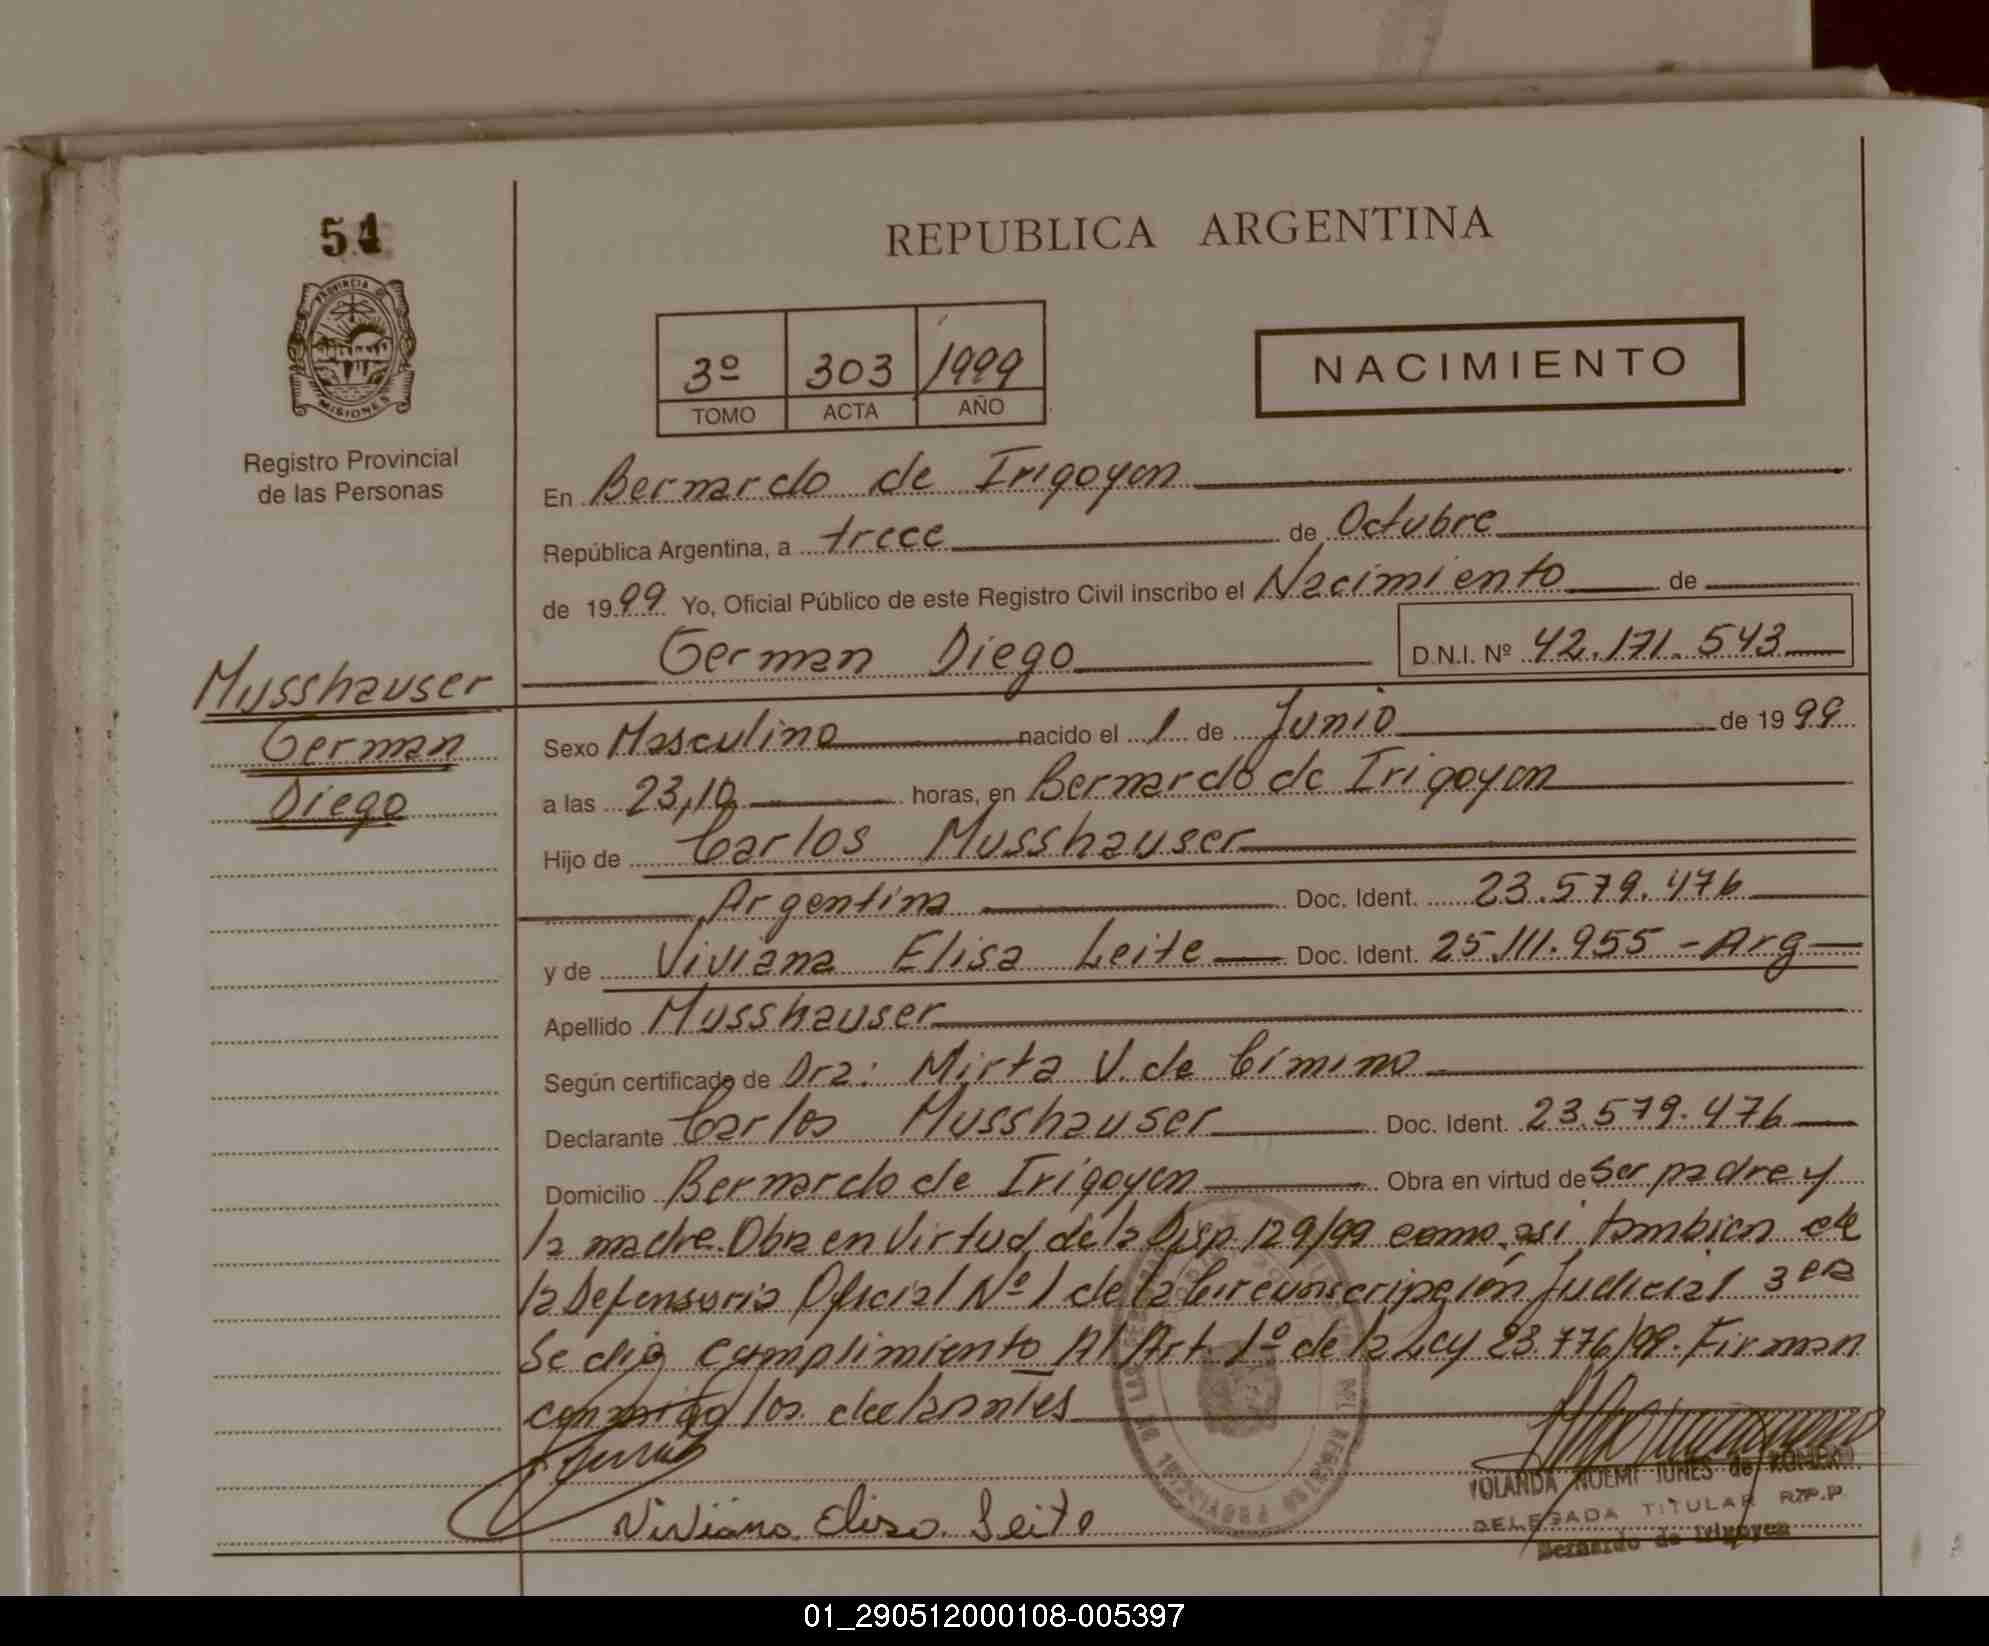 54
PROVINCIA DE
MISIONES
Registro Provincial
de las Personas
Musshauser
German
Diego
REPUBLICA ARGENTINA
3º 303 1999
TOMO ACTA AÑO
NACIMIENTO
En Bernardo de Irigoyen
República Argentina, a trece de Octubre
de 1999 Yo, Oficial Público de este Registro Civil inscribo el Nacimiento de
German Diego D.N.I. Nº 42.171.543
Sexo Masculino nacido el 1 de Junio de 1999
a las 23,10 horas, en Bernardo de Irigoyen
Hijo de Carlos Musshauser
Argentina Doc. Ident. 23.579.476
y de Viviana Elisa Leite Doc. Ident. 25.111.955 - Arg
Apellido Musshauser
Según certificado de Dra: Mirta V. de Cimino
Declarante Carlos Musshauser Doc. Ident. 23.579.476
Domicilio Bernardo de Irigoyen Obra en virtud de Ser padre y
la madre. Obra en Virtud de la Disp. 129/99 como asi tambien de
la Defensoria Oficial Nº 1 de la Circunscripción Judicial 3era
Se dio cumplimiento Al Art. 1º de la Ley 23.776/99. Firman
conmigo los
Viviana Elisa Leite
YOLANDA NOEMI de ROMERO
DELEGADA TITULAR R.P.P.
Bernardo de Irigoyen
01_290512000108-005397